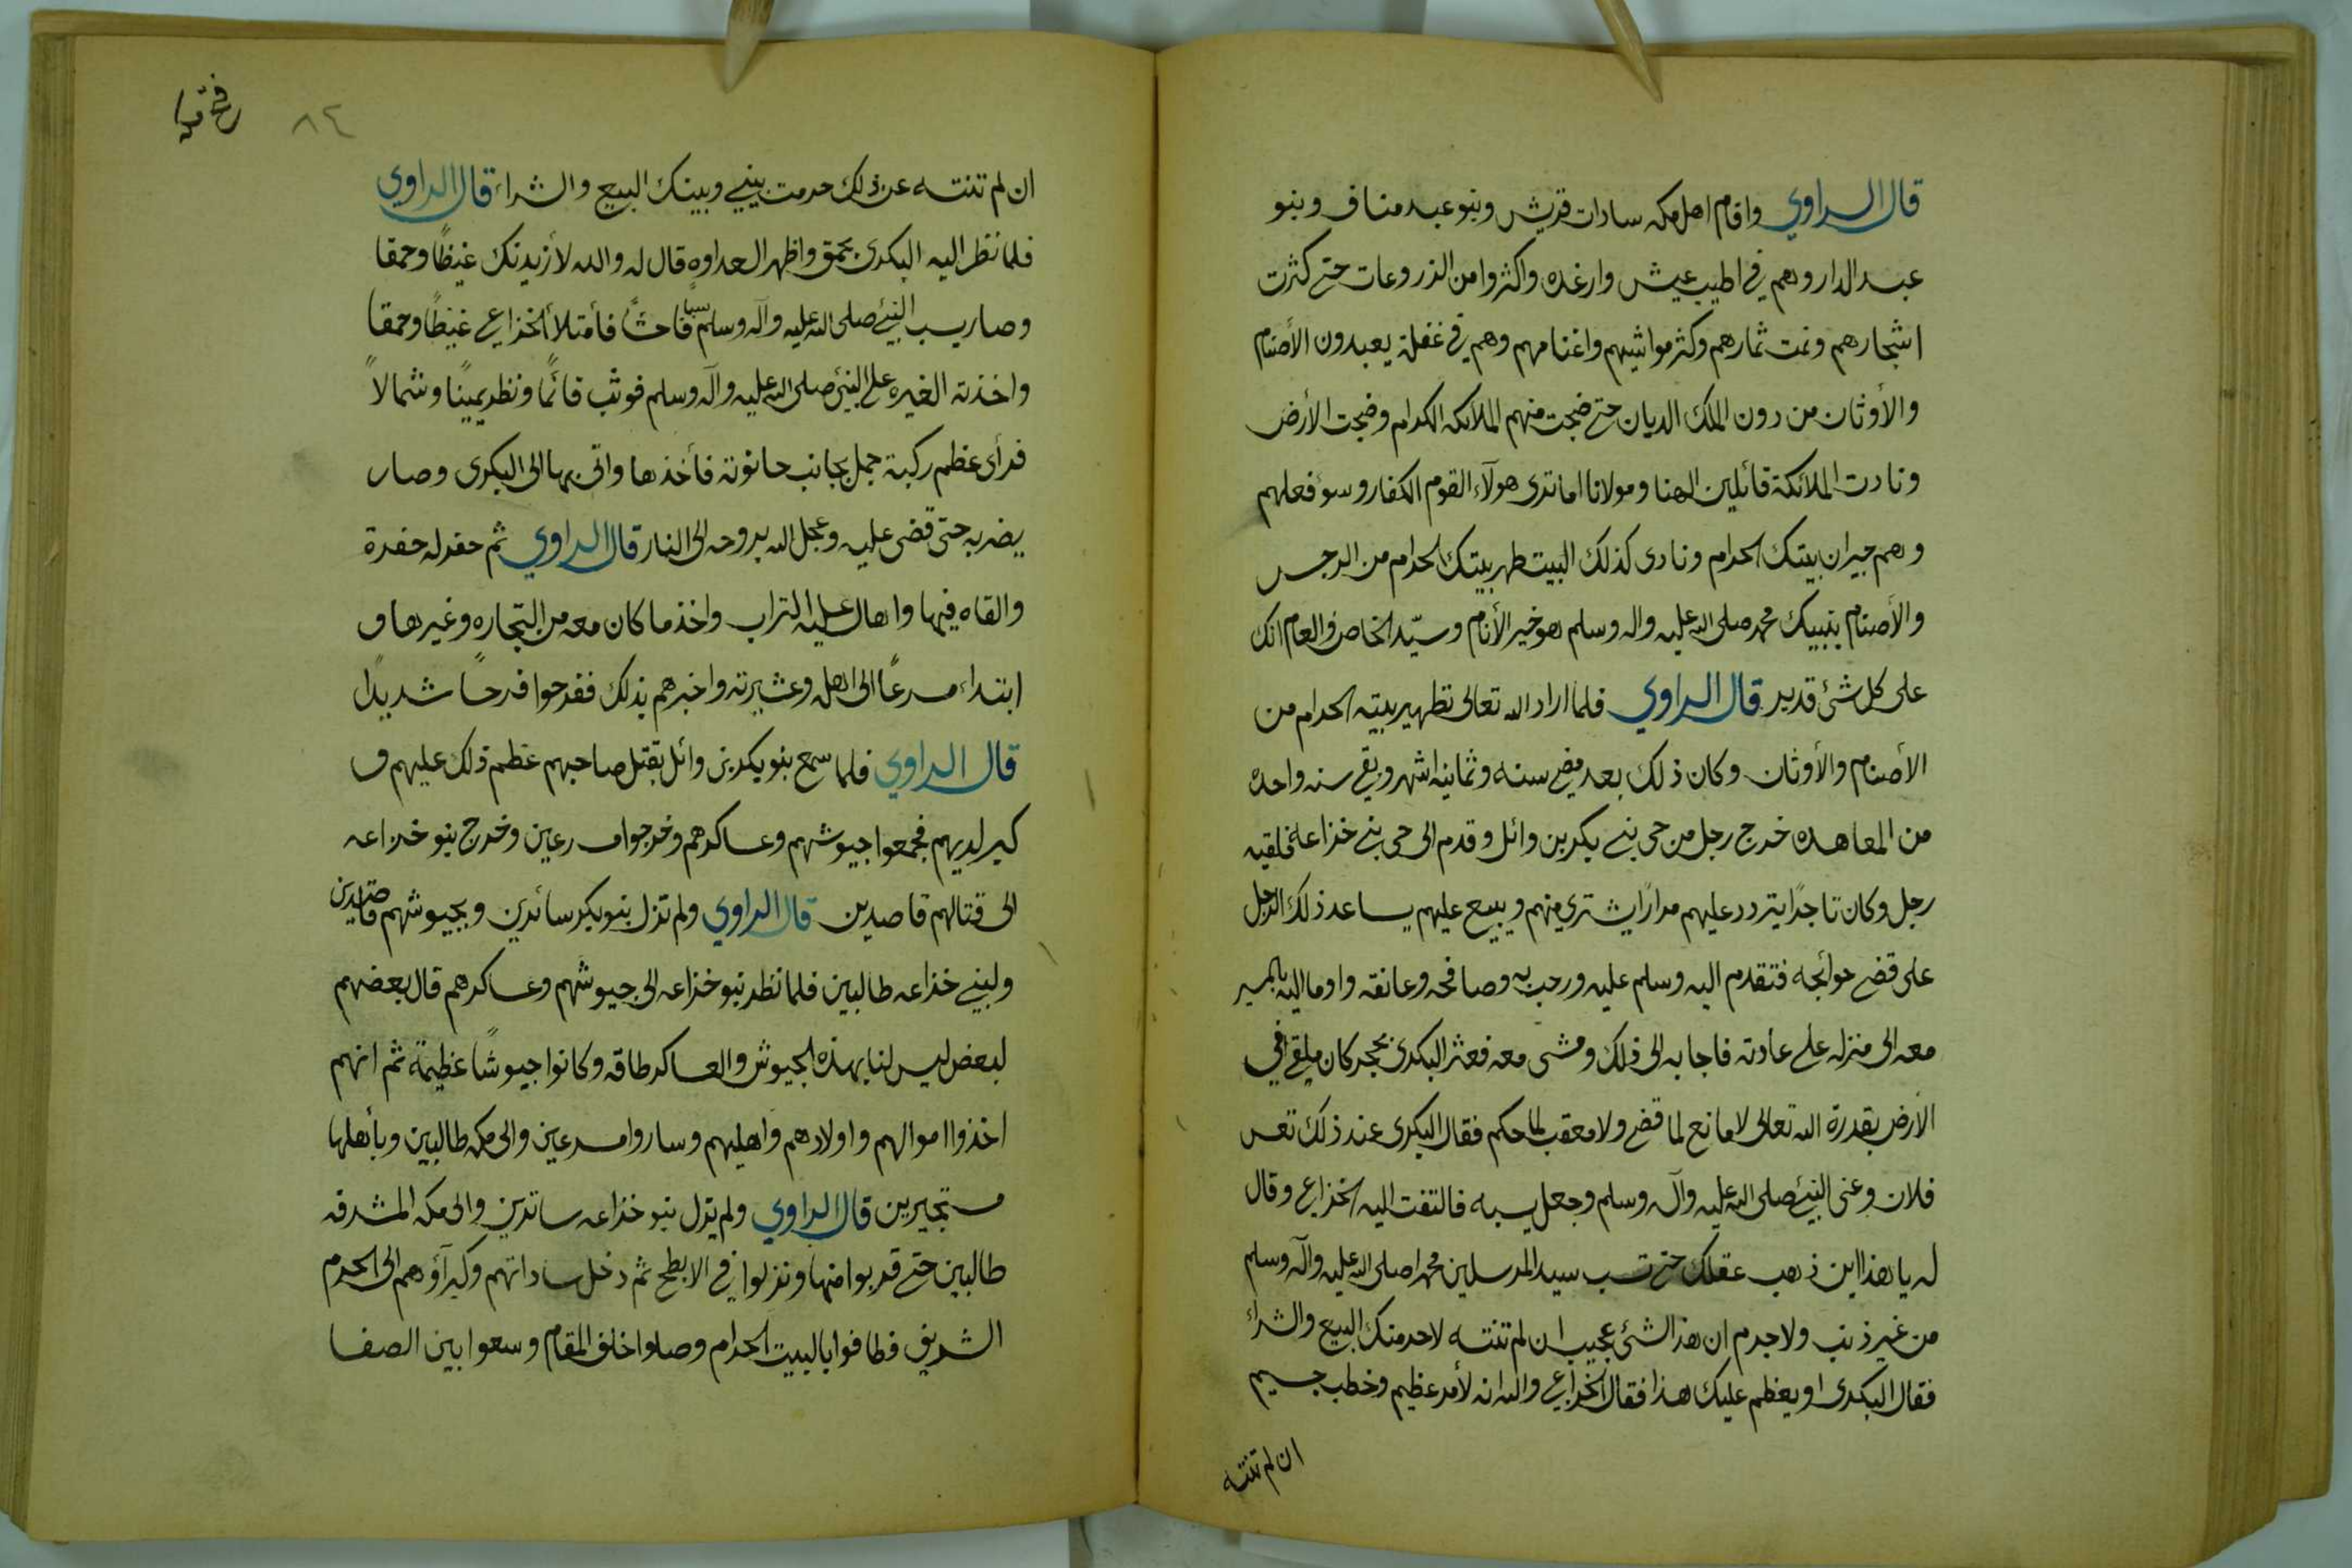 قال الراوي واقام اهل مكه سادات قريش وبنو عبد مناف وبنو
عبد الدار وهم في اطيب عيش وارغده واكثروا من الذروعات حتى كثرت
اشجارهم ونمت ثمارهم وكثر مواشيهم واغنامهم وهم في غفلة يعبدون الأصنام
والأوثان من دون الملك الديان حتى ضجت منهم الملائكه الكرام وضجت الأرض
ونادت الملائكة قائلين الهنا ومولانا اما ترى هولآء القوم الكفار وسوء فعلهم
وهم جيران بيتك الحرام ونادى كذلك البيت طهر بيتك الحرام من الرجس
والأصنام بنبيك محمد صلى الله عليه واله وسلم هو خير الأنام وسيّد الخاص والعام انك
على كل شئ قدير قال الراوي فلما اراد الله تعالى تطهير بيته الحرام من
الأصنام والأوثان وكان ذلك بعد مضي سنه وثمانية اشهر وبقي سنه واحده
من المعاهده خرج رجل من حي بني بكر بن وائل وقدم الى حي بني خزاعه فلقيه
رجل وكان تاجرًا يتردد عليهم مرارًا يشتري منهم ويبيع عليهم يساعد ذلك الرجل
على قضى حوائجه فتقدم اليه وسلم عليه ورحب به وصافحه وعانقه واوما اليه بالمسير
معه الى منزله على عادته فاجابه الى ذلك ومشى معه فعثر البكرى بحجر كان ملقى في
الأرض بقدرة الله تعالى لا مانع لما قضى ولا معقب لما حكم فقال البكرى عند ذلك تعس
فلان وعنى النبيّ صلى الله عليه وآله وسلم وجعل يسبه فالتفت اليه الخزاعي وقال
له يا هذا اين ذهب عقلك حتى تسب سيد المرسلين محمدا صلى الله عليه وآله وسلم
من غير ذنب ولا جرم ان هذا الشئ عجيب ان لم تنته لاحرمنك البيع والشراء
فقال البكرى او يعظم عليك هذا فقال الخزاعي والله انه لأمر عظيم وخطب جسيم
ان لم تنته
٨٤
ان لم تنته عن ذلك حرمت بيني وبينك البيع والشراء قال الراوي
فلما نظر اليه البكرى بحمق واظهر العداوه قال له والله لأزيدنك غيظًا وحمقا
وصار يسب النبيّ صلى الله عليه وآله وسلم سبًا فاحشًا فأمتلأ الخزاعي غيظًا وحمقا
واخذته الغيره على النبيّ صلى الله عليه وآله وسلم فوثب قائمًا ونظر يمينًا وشمالًا
فرأى عظم ركبة جمل بجانب حانوته فأخذها واتى بها الى البكرى وصار
يضربه حتى قضى عليه وعجل الله بروحه الى النار قال الراوي ثم حفر له حفرة
والقاه فيها واهال عليه التراب واخذ ما كان معه من التجاره وغيرها و
ابتداء مسرعًا الى اهله وعشيرته واخبرهم بذلك ففرحوا فرحًا شديدًا
قال الراوي فلما سمع بنو بكر بن وائل بقتل صاحبهم عظم ذلك عليهم و
كبر لديهم فجمعوا جيوشهم وعساكرهم وخرجوا مسرعين وخرج بنو خزاعه
الى قتالهم قاصدين قال الراوي ولم تزل بنو بكر سائرين وبجيوشهم قاصدين
ولبني خزاعه طالبين فلما نظر بنو خزاعه الى جيوشهم وعساكرهم قال بعضهم
لبعض ليس لنا بهذه الجيوش والعساكر طاقه وكانوا جيوشًا عظيمة ثم انهم
اخذوا اموالهم واولادهم واهليهم وساروا مسرعين والى مكه طالبين وبأهلها
مستجيرين قال الراوي ولم يزل بنو خزاعه سائرين والى مكه المشرفه
طالبين حتى قربوا منها ونزلوا في الابطح ثم دخل ساداتهم وكبرآؤهم الى الحرم
الشريف فطافوا بالبيت الحرام وصلوا خلف المقام وسعوا بين الصفا